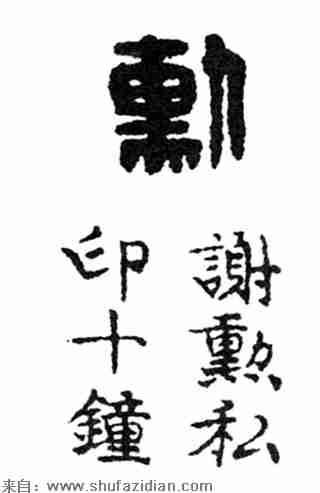 勳
謝勲私
印十鐘
来自：www.shufazidian.com